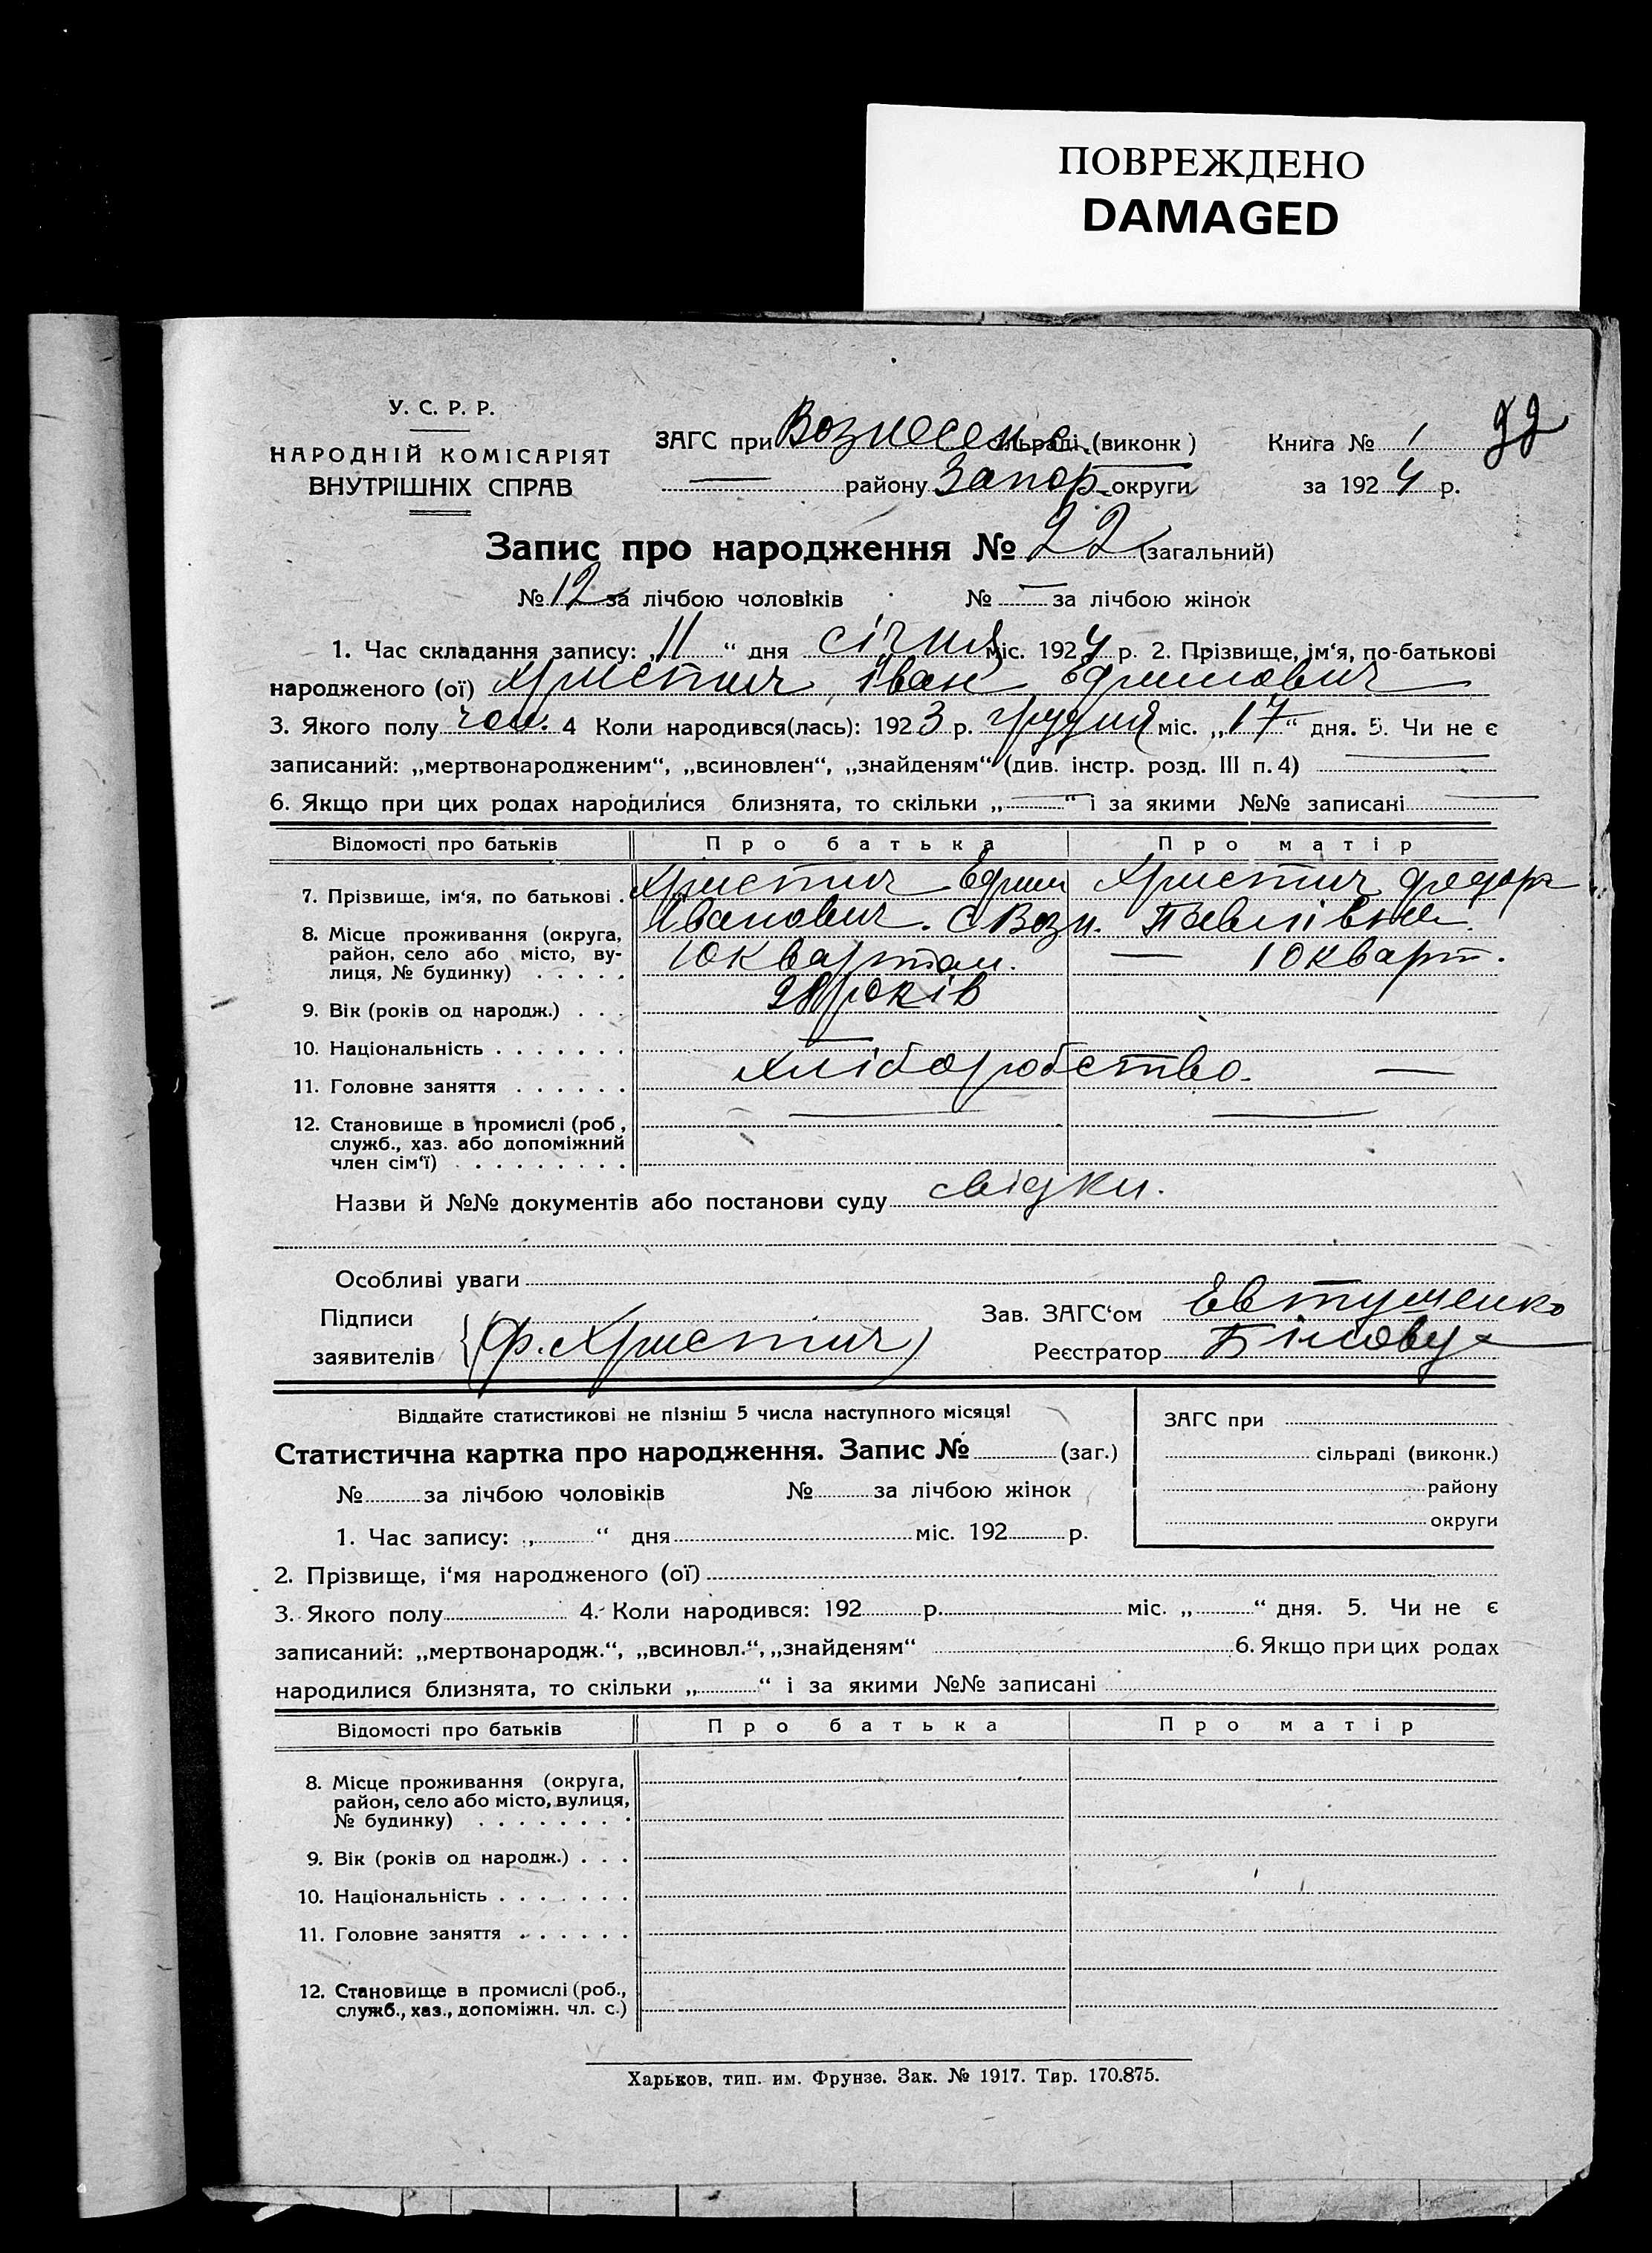 ПОВРЕЖДЕНО
DAMAGED
У. С. Р. Р.
НАРОДНІЙ КОМІСАРІЯТ
ВНУТРІШНІХ СПРАВ
ЗАГС при Вознесенс. сільраді (виконк)
— району Запор. округи
Книга № 1
за 1924 р.
22
Запис про народження № 22 (загальний)
№ 12 за лічбою чоловіків № — за лічбою жінок
1. Час складання запису: „11“ дня січня міс. 1924 р. 2. Прізвище, ім‘я, по-батькові
народженого (ої) Христич Іван Ефимович
3. Якого полу чол. 4 Коли народився(лась): 1923 р. грудня міс. „17“ дня. 5. Чи не є
записаний: „мертвонародженим“, „всиновлен“, „знайденям“ (див. інстр. розд. III п. 4) —
6. Якщо при цих родах народилися близнята, то скільки „—“ і за якими №№ записані —
Відомості про батьків Про батька Про матір
7. Прізвище, ім‘я, по батькові . Христич Ефим Христич Федора
Іванович. с Возн. Павлівна.
8. Місце проживання (округа, район, село або місто, вулиця, № будинку) . . . . . 10 квартал. — 10 кварт.
9. Вік (років од народж.) . . . 28 років
10. Національність . . . . . . . —
11. Головне заняття . . . . . . хліборобство. —
12. Становище в промислі (роб, служб., хаз. або допоміжний член сім‘ї) . . . . . . . . . — —
Назви й №№ документів або постанови суду свідки.
Особливі уваги
Підписи
заявителів (Ф. Христич)
Зав. ЗАГС‘ом Евтушенко
Реєстратор
Віддайте статистикові не пізніш 5 числа наступного місяця!
Статистична картка про народження. Запис № (заг.)
№ за лічбою чоловіків № за лічбою жінок
1. Час запису: „ “ дня міс. 192 р.
ЗАГС при
сільраді (виконк.)
району
округи
2. Прізвище, і‘мя народженого (ої)
3. Якого полу 4. Коли народився: 192 р. міс. „ “ дня. 5. Чи не є
записаний: „мертвонародж.“, „всиновл.“, „знайденям“ 6. Якщо при цих родах
народилися близнята, то скільки „ “ і за якими №№ записані
Відомості про батьків Про батька Про матір
8. Місце проживання (округа,
район, село або місто, вулиця,
№ будинку) . . . . . . . .
9. Вік (років од народж.) . . .
10. Національність . . . . . . .
11. Головне заняття . . . . . .
12. Становище в промислі (роб.,
служб., хаз., допоміжн. чл. с.)
Харьков, тип. им. Фрунзе. Зак. № 1917. Тир. 170.875.